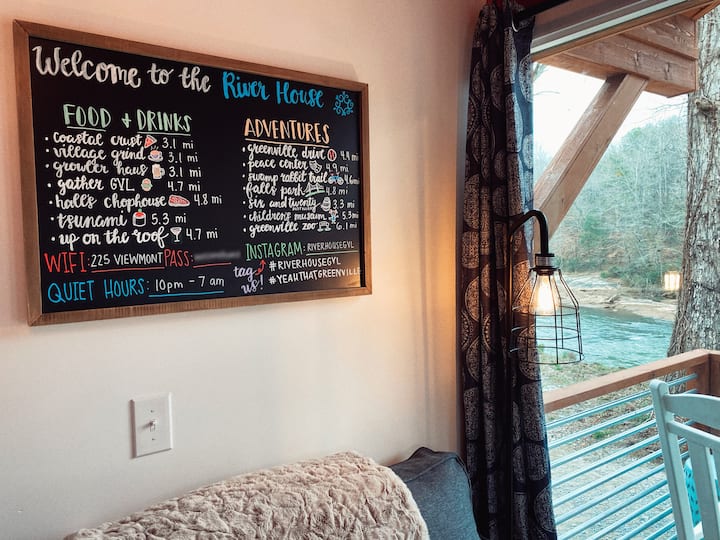 Welcome to the River House
FOOD + DRINKS
• coastal crust 3.1 mi
• village grind 3.1 mi
• growler haus 3.1 mi
• gather GVL 4.7 mi
• halls chophouse 4.8 mi
• tsunami 5.3 mi
• up on the roof 4.7 mi
ADVENTURES
• greenville drive 4.4 mi
• peace center 4.9 mi
• swamp rabbit trail 4.6 mi
• falls park 4.8 mi
• six and twenty 3.3 mi
• children's museum 5.3 mi
• greenville zoo 6.1 mi
WIFI: 225 VIEWMONT PASS:
QUIET HOURS: 10pm - 7am
INSTAGRAM: RIVERHOUSEGVL
tag us!
#RIVERHOUSEGVL
#YEAHTHATGREENVILLE